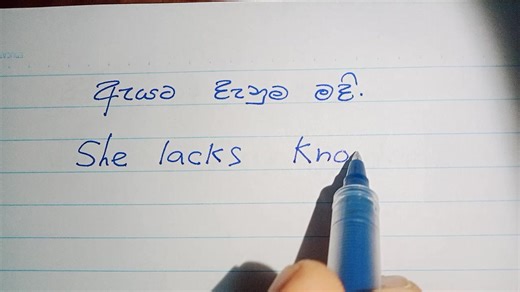 ඇයට දැනුම මදි.
She lacks Kno